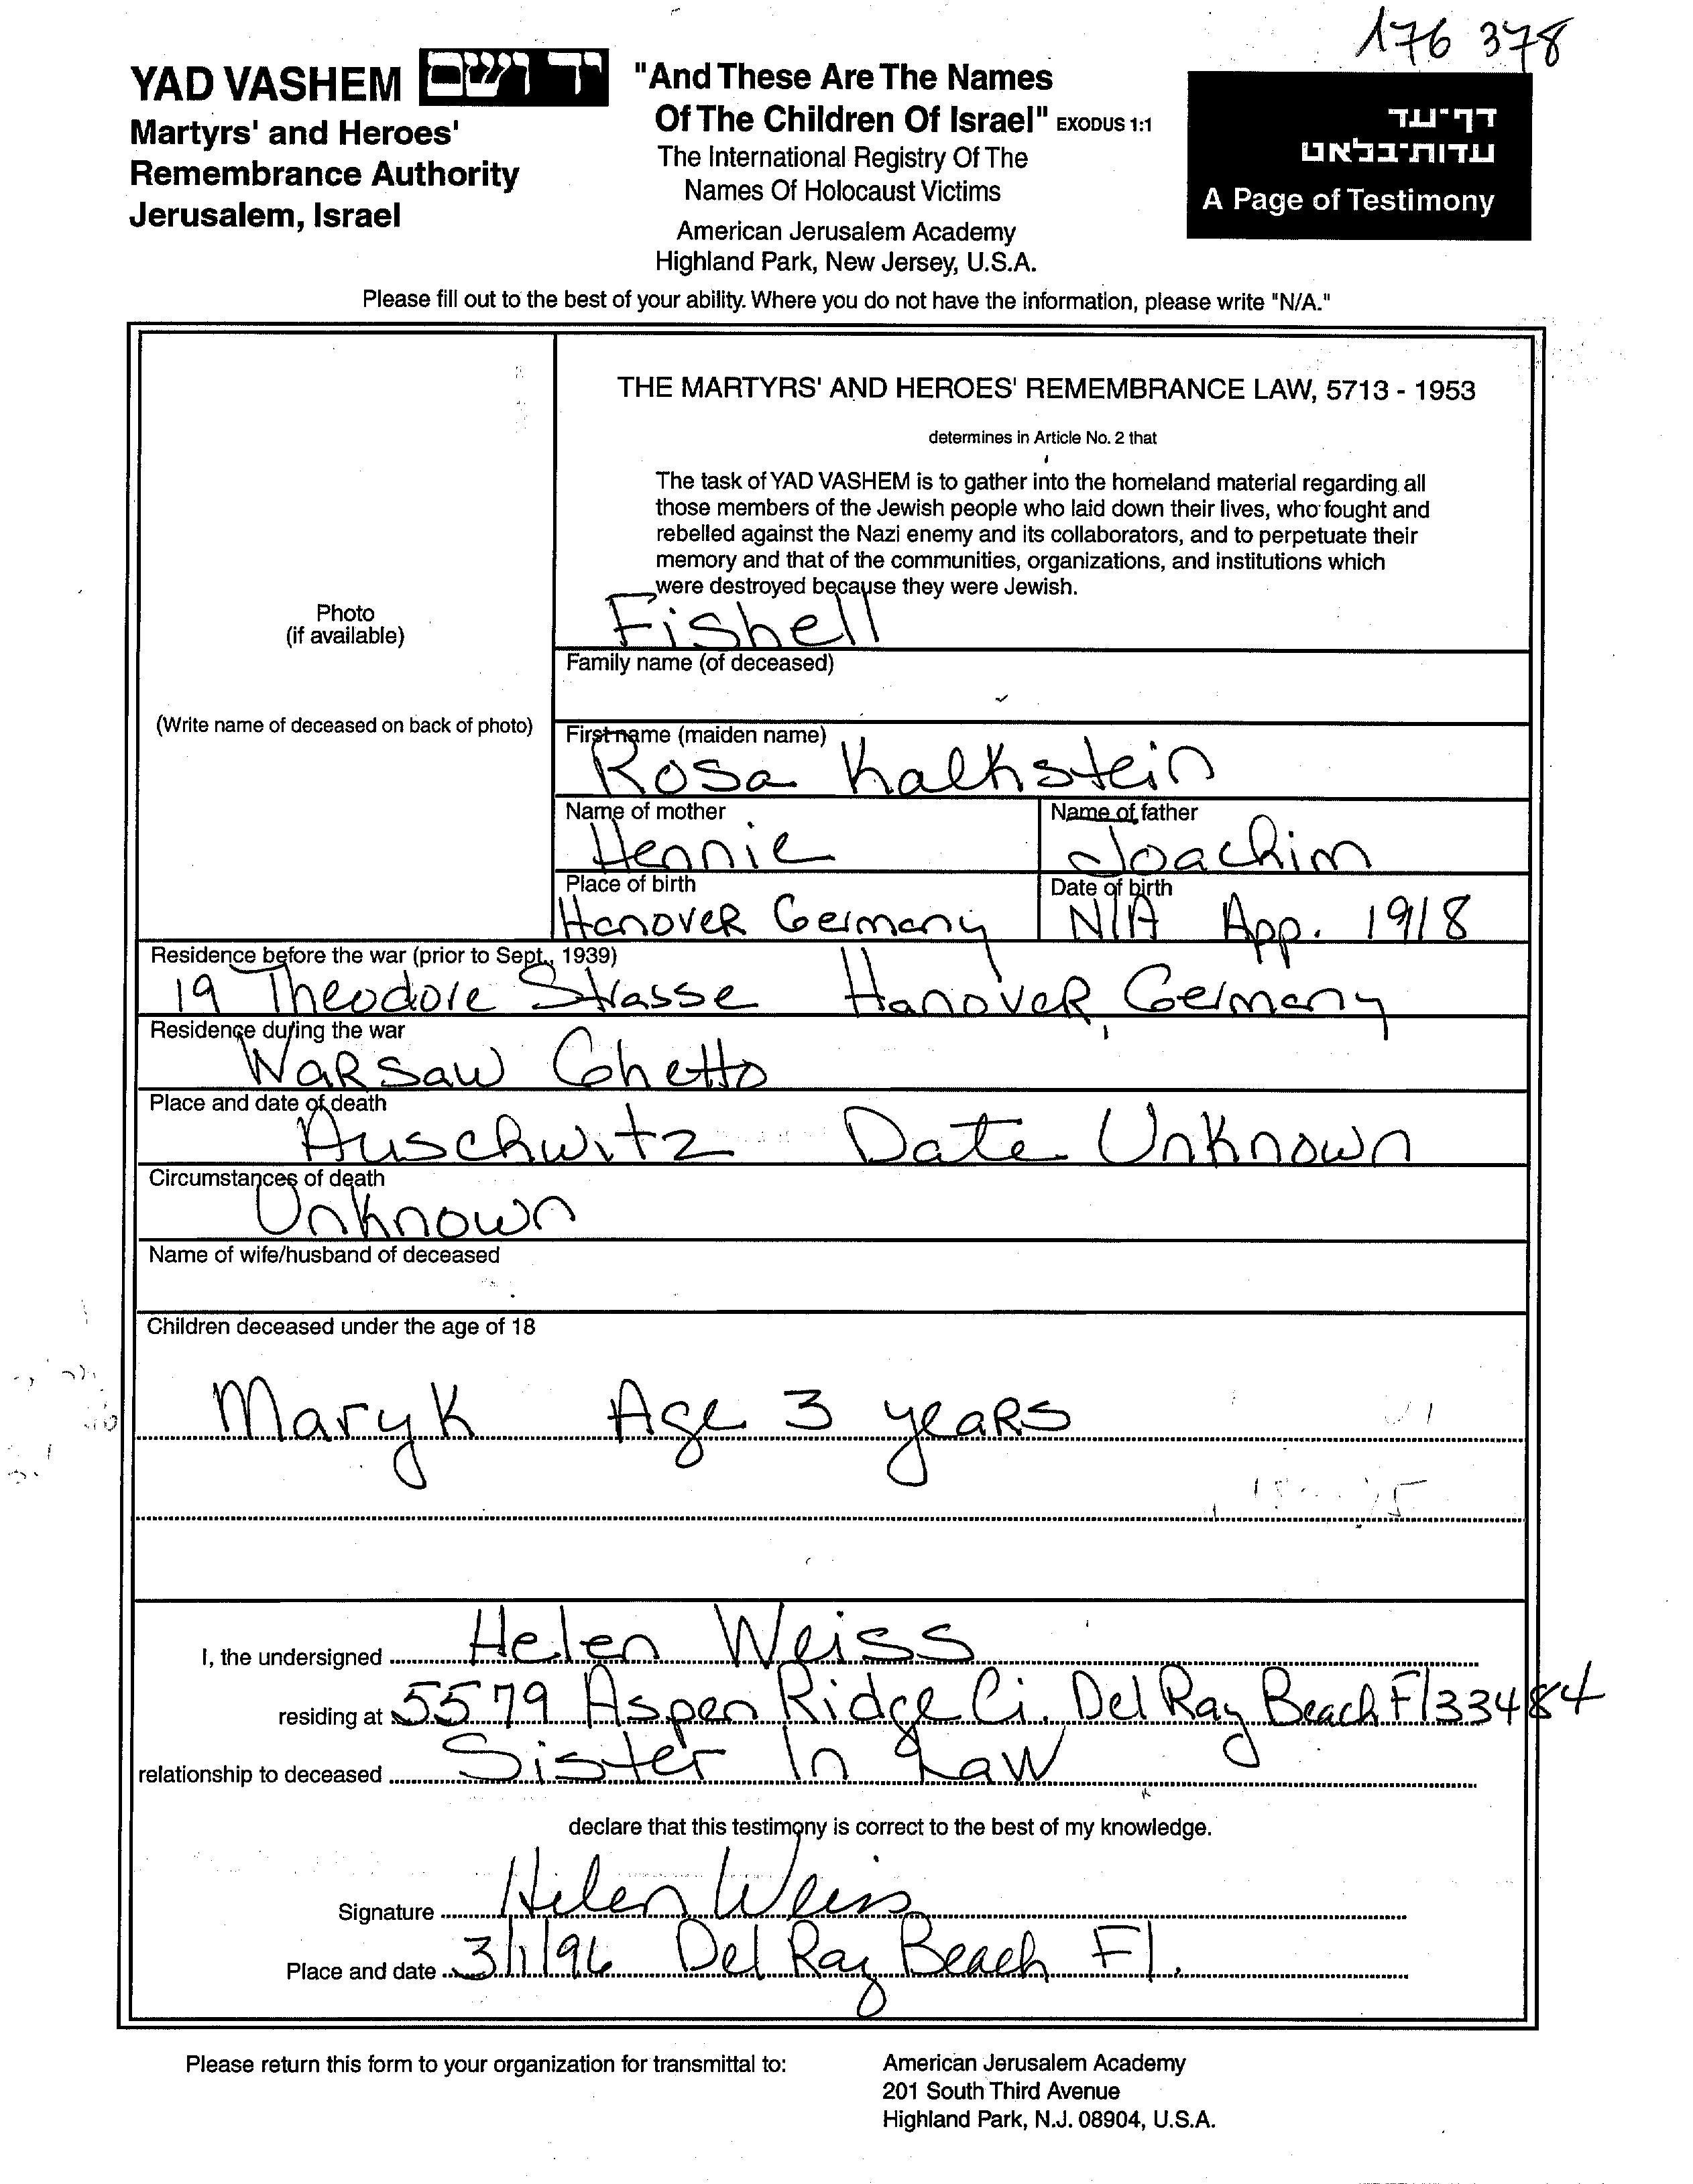 176 378
YAD VASHEM יד ושם
Martyrs' and Heroes'
Remembrance Authority
Jerusalem, Israel
"And These Are The Names
Of The Children Of Israel" EXODUS 1:1
The International Registry Of The
Names Of Holocaust Victims
American Jerusalem Academy
Highland Park, New Jersey, U.S.A.
דף־עד
עדות־בלאט
A Page of Testimony
Please fill out to the best of your ability. Where you do not have the information, please write "N/A."
Photo
(if available)
(Write name of deceased on back of photo)
THE MARTYRS' AND HEROES' REMEMBRANCE LAW, 5713 - 1953
determines in Article No. 2 that
The task of YAD VASHEM is to gather into the homeland material regarding all
those members of the Jewish people who laid down their lives, who fought and
rebelled against the Nazi enemy and its collaborators, and to perpetuate their
memory and that of the communities, organizations, and institutions which
were destroyed because they were Jewish.
Fishell
Family name (of deceased)
First name (maiden name)
Rosa Kalkstein
Name of mother
Hennie
Name of father
Joachim
Place of birth
Hanover Germany
Date of birth
N/A App. 1918
Residence before the war (prior to Sept., 1939)
19 Theodore Strasse Hanover, Germany
Residence during the war
Warsaw Ghetto
Place and date of death
Auschwitz Date Unknown
Circumstances of death
Unknown
Name of wife/husband of deceased
Children deceased under the age of 18
Maryk Age 3 years
I, the undersigned Helen Weiss
residing at 5579 Aspen Ridge Ci. Del Ray Beach Fl 33484
relationship to deceased Sister In Law
declare that this testimony is correct to the best of my knowledge.
Signature Helen Weiss
Place and date 3/1/96 Del Ray Beach Fl.
Please return this form to your organization for transmittal to:
American Jerusalem Academy
201 South Third Avenue
Highland Park, N.J. 08904, U.S.A.